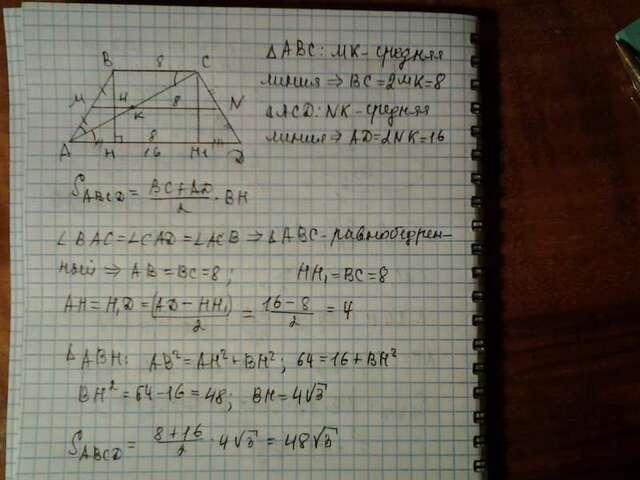 B 8 C
M 4 K 8 N
A H 8 16 H₁ D
ΔABC: MK-средняя
линия ⇒ BC=2MK=8
ΔACD: NK-средняя
линия ⇒ AD=2NK=16
S_ABCD = (BC+AD)/2 · BH
∠BAC=∠CAD=∠ACB ⇒ ΔABC-равнобедрен-
ный ⇒ AB=BC=8; HH₁=BC=8
AH=H₁D=(AD-HH₁)/2 = (16-8)/2 = 4
ΔABH: AB²=AH²+BH²; 64=16+BH²
BH²=64-16=48; BH=4√3
S_ABCD = (8+16)/2 · 4√3 = 48√3